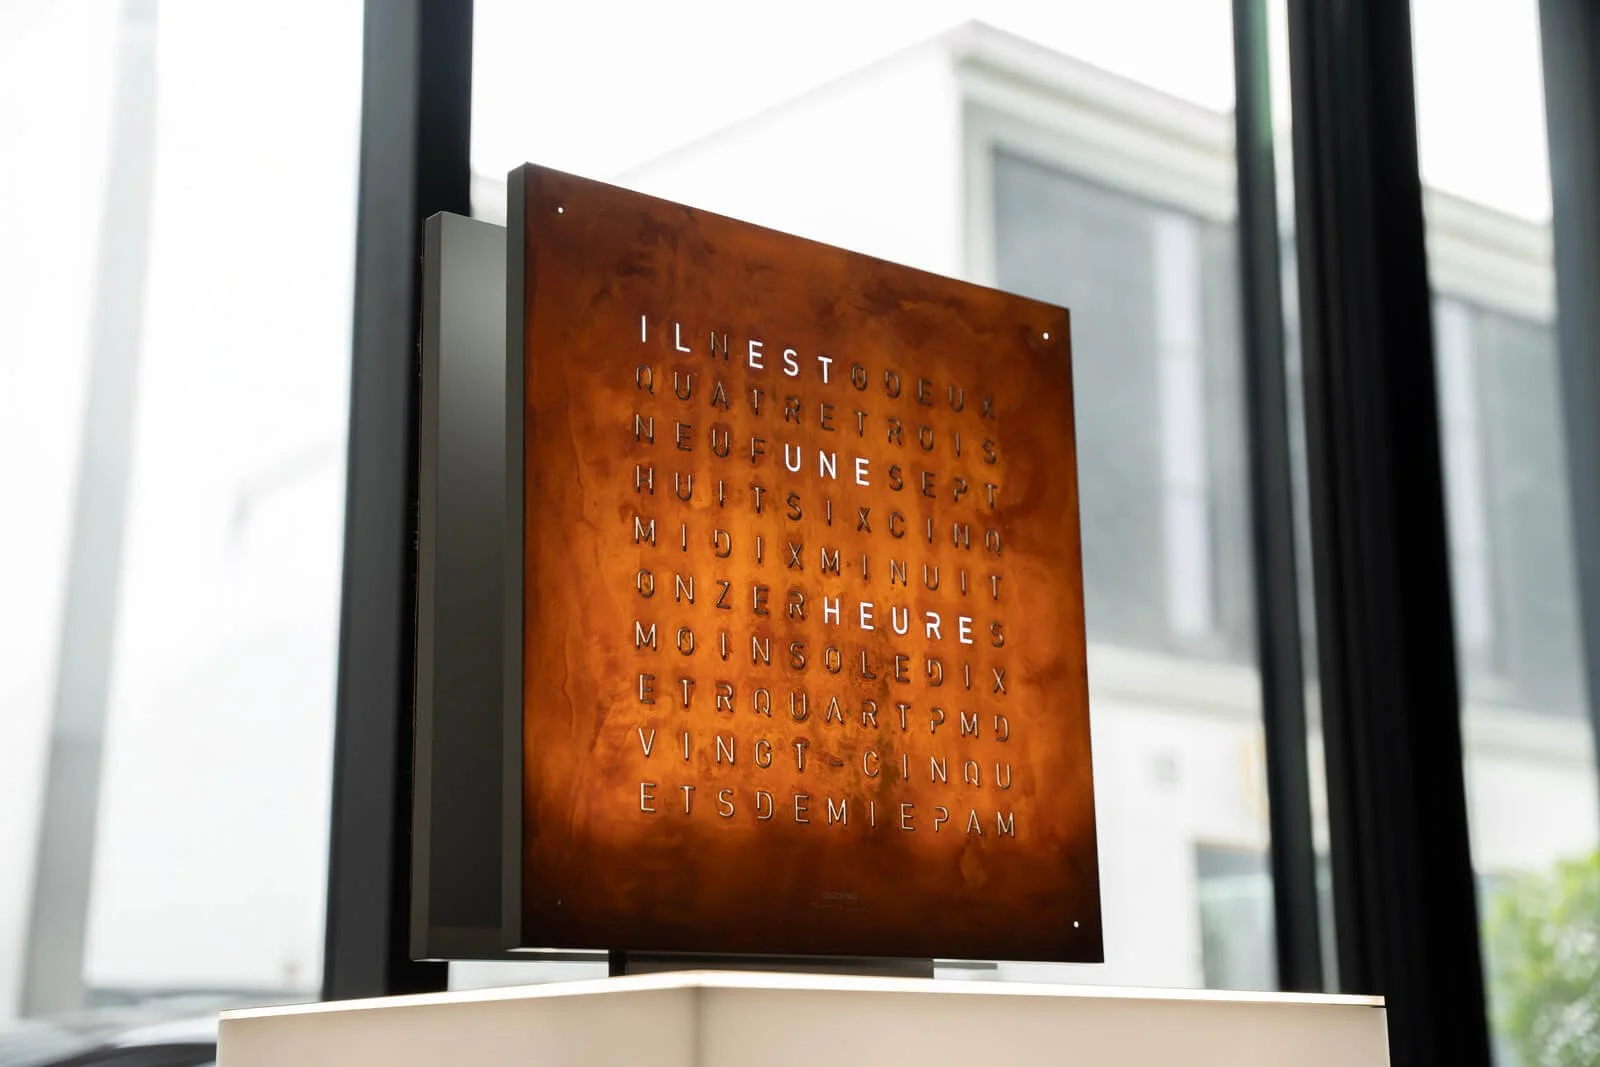 ILNESTODEUX
QUATRETROIS
NEUFUNESEPT
HUITSIXCINQ
MIDIXMINUIT
ONZERHEURES
MOINSOLEDIX
ETRQUARTPMD
VINGT-CINQU
ETSDEMIEPAM